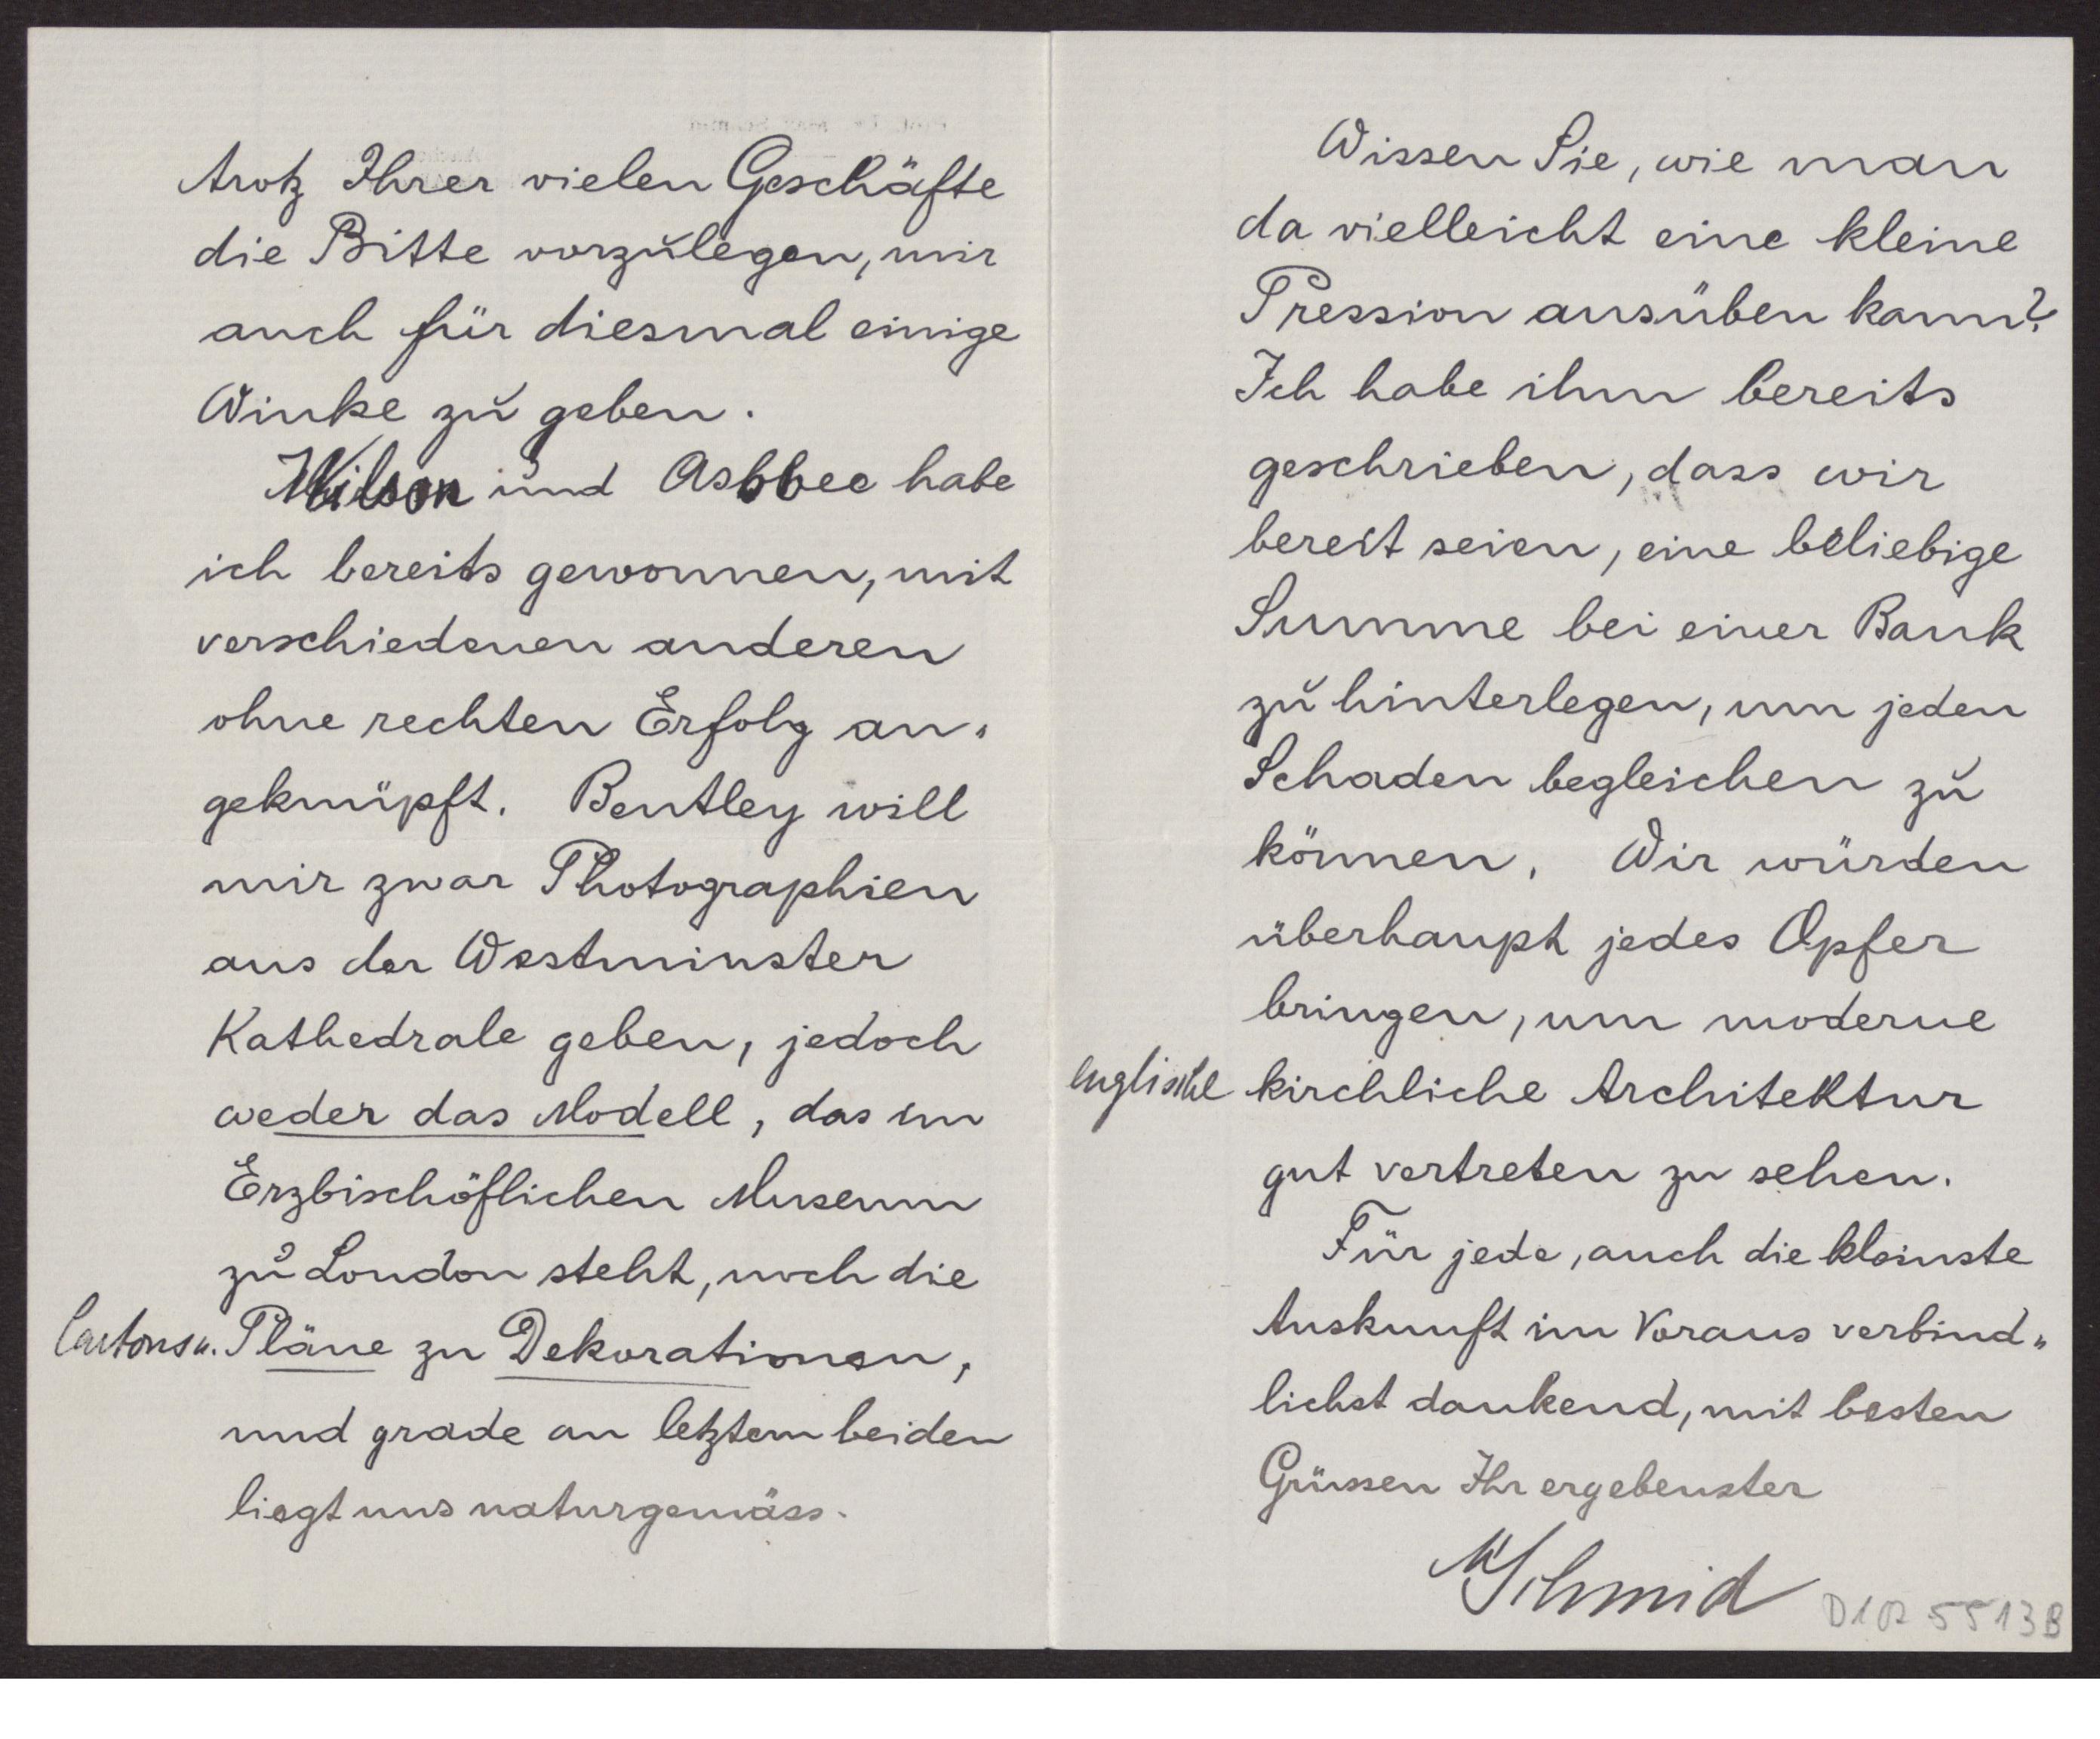 trotz Ihrer vielen Geschäfte
die Bitte vorzulegen, mir
auch für diesmal einige
Winke zu geben.
Wilson und Asbbee habe
ich bereits gewonnen, mit
verschiedenen anderen
ohne rechten Erfolg an-
geknüpft. Bentley will
mir zwar Photographien
aus der Westminster
Kathedrale geben, jedoch
weder das Modell, das im
Erzbischöflichen Museum
zu London steht, noch die
Cartons u. Pläne zu Dekorationen,
und grade an letztern beiden
liegt uns naturgemäss.
Wissen Sie, wie man
da vielleicht eine kleine
Pression ausüben kann?
Ich habe ihm bereits
geschrieben, dass wir
bereit seien, eine beliebige
Summe bei einer Bank
zu hinterlegen, um jeden
Schaden begleichen zu
können. Wir würden
überhaupt jedes Opfer
bringen, um moderne
englische kirchliche Architektur
gut vertreten zu sehen.
Für jede, auch die kleinste
Auskunft im Voraus verbind„
lichst dankend, mit besten
Grüssen Ihr ergebenster
MSchmid
5513B